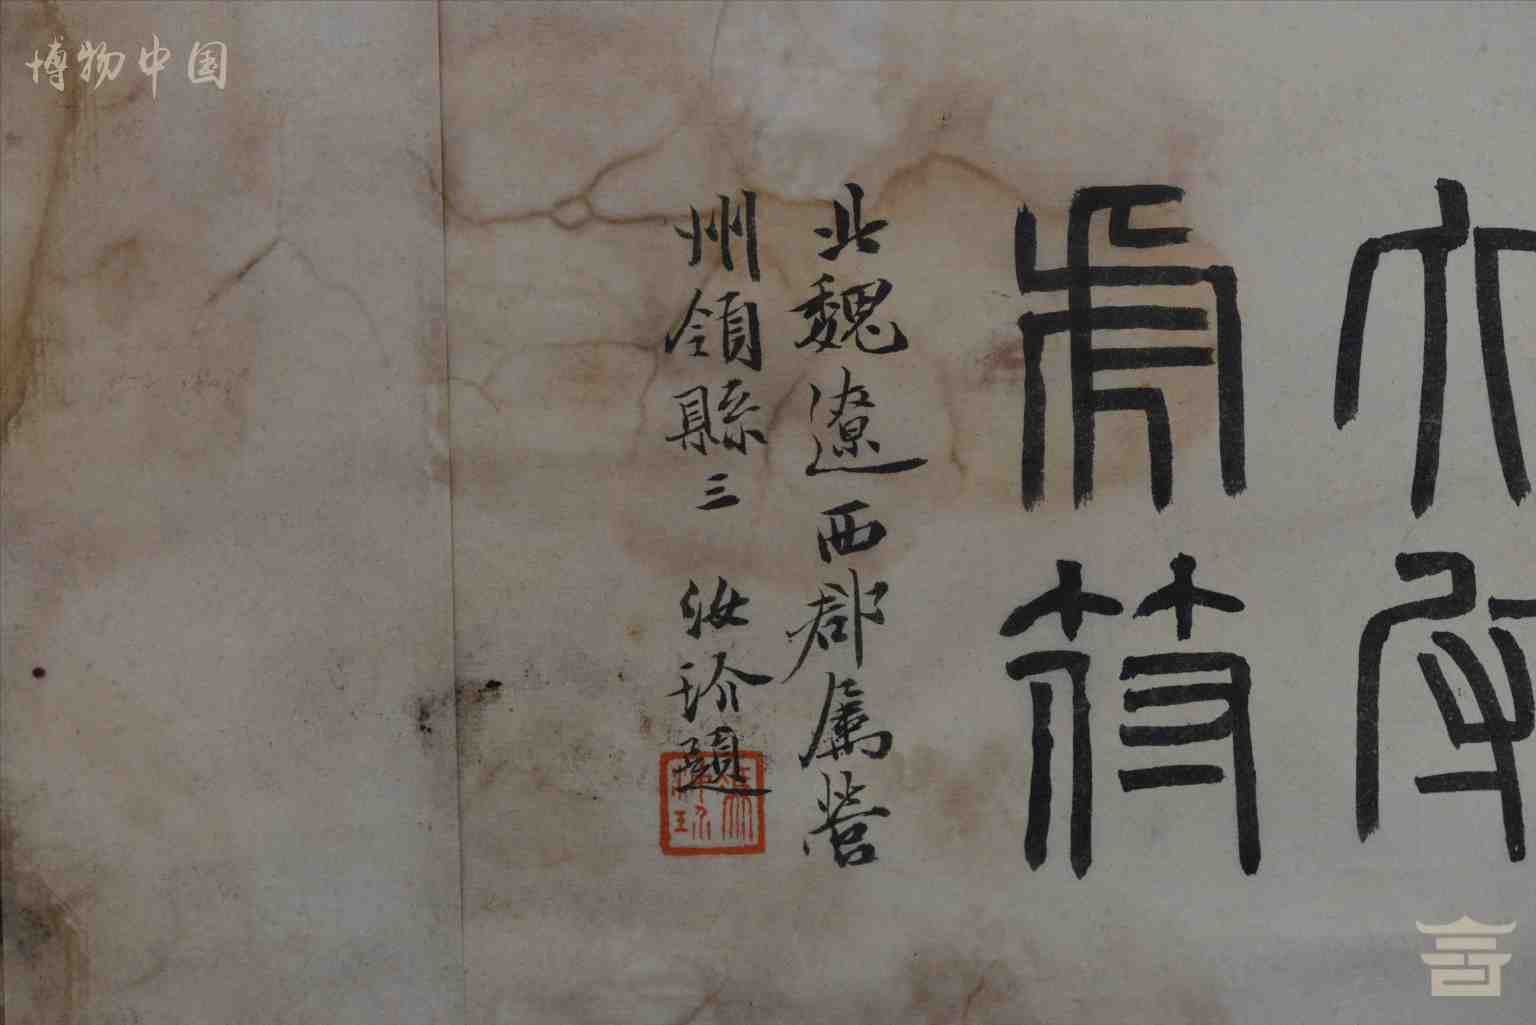 博物中国
虎符
北魏遼西郡属營
州領縣三 汝珍題